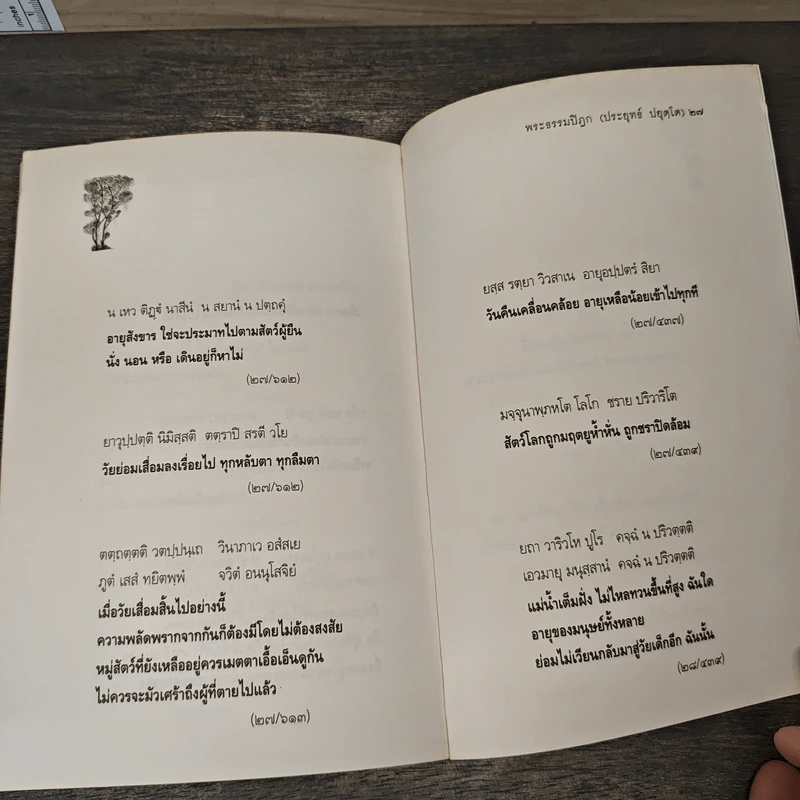 น เหว ติฏฺฐํ นาสีนํ น สยานํ น ปตฺถคุํ
อายุสังขาร ใช่จะประมาทไปตามสัตว์ผู้ยืน
นั่ง นอน หรือ เดินอยู่ก็หาไม่
(๒๗/๖๑๒)
ยาวุปฺปตฺติ นิมิสฺสติ ตตฺราปิ สรตี วโย
วัยย่อมเสื่อมลงเรื่อยไป ทุกหลับตา ทุกลืมตา
(๒๗/๖๑๒)
ตตฺถตฺตติ วตปฺปนฺเถ วินาภาเว อสํสเย
ภูตํ เสสํ ทยิตพฺพํ จวิตํ อนนุโสจิยํ
เมื่อวัยเสื่อมสิ้นไปอย่างนี้
ความพลัดพรากจากกันก็ต้องมีโดยไม่ต้องสงสัย
หมู่สัตว์ที่ยังเหลืออยู่ควรเมตตาเอื้อเอ็นดูกัน
ไม่ควรจะมัวเศร้าถึงผู้ที่ตายไปแล้ว
(๒๗/๖๑๓)
พระธรรมปิฎก (ประยุทธ์ ปยุตฺโต) ๒๗
ยสฺส รตฺยา วิวสาเน อายุอปฺปตรํ สิยา
วันคืนเคลื่อนคล้อย อายุเหลือน้อยเข้าไปทุกที
(๒๗/๔๓๗)
มจฺจุนาพฺภหโต โลโก ชราย ปริวาริโต
สัตว์โลกถูกมฤตยูห้ำหั่น ถูกชราปิดล้อม
(๒๗/๔๓๙)
ยถา วาริวโห ปูโร คจฺฉํ น ปริวตฺตติ
เอวมายุ มนุสฺสานํ คจฺฉํ น ปริวตฺตติ
แม่น้ำเต็มฝั่ง ไม่ไหลทวนขึ้นที่สูง ฉันใด
อายุของมนุษย์ทั้งหลาย
ย่อมไม่เวียนกลับมาสู่วัยเด็กอีก ฉันนั้น
(๒๘/๔๓๙)
inches
1